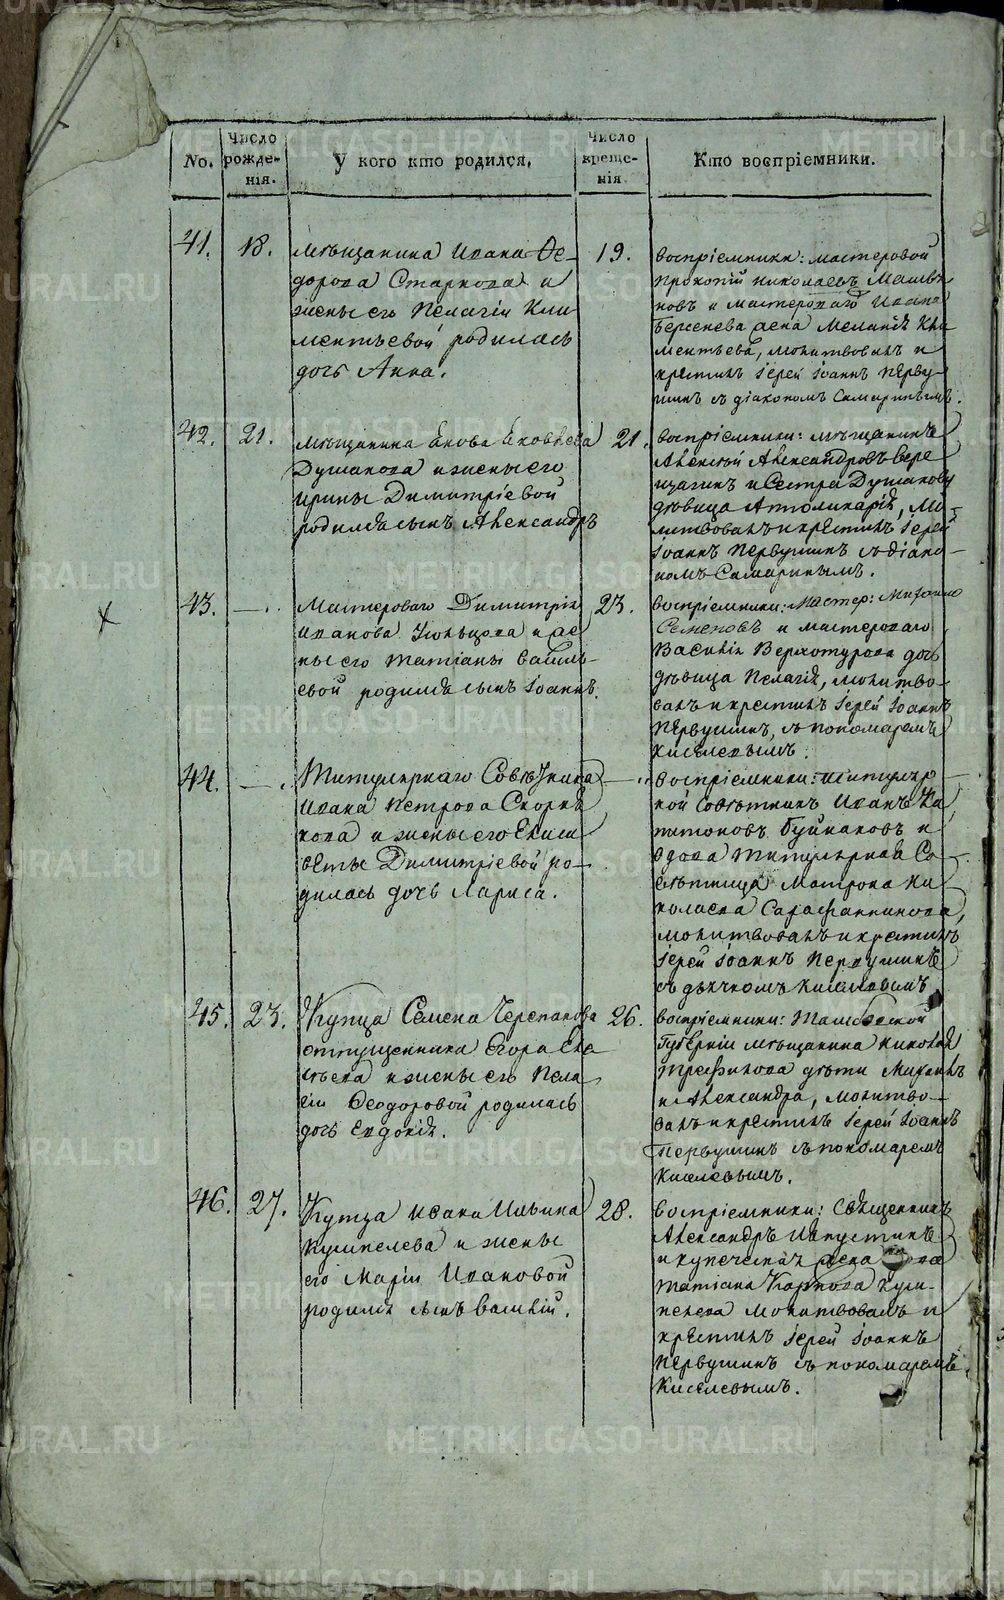 No.
Число рожденія.
У кого кто родился.
Число крещенія
Кто воспріемники.
41.
18.
мѣщанина Ивана Ѳе-
дорова Старкова и
жены его Пелагіи Кли
ментьевой родилась
дочь Анна.
19.
воспріемники: мастеровой
Прокопій Николаевъ
новъ и мастероваго Ивана
Берсенева жена Меланія Кли
ментьева, молитвовалъ и
крестилъ іерей Іоаннъ Перву-
шинъ съ діакономъ Самаринымъ.
42.
21.
мѣщанина Якова Яковлева
Душакова и жены его
Ирины Димитріевой
родился сынъ Александръ
21.
воспріемники: мѣщанинъ
Алексѣй Александровъ Вере
щагинъ и Сестра Душакову
дѣвица Апполинарія, Мо-
литвовалъ и крестилъ іерей
Іоаннъ Первушинъ съ діако-
номъ Самаринымъ.
43.
—.
Мастероваго Димитрія
Иванова и же
ны его Татіаны Василь-
евой родился сынъ Іоаннъ.
23.
воспріемники: Мастер: Михаило
Семеновъ и мастероваго
Василія Верхотурова дочь
дѣвица Пелагія, молитво-
валъ и крестилъ іерей Іоаннъ
Первушинъ, съ пономаремъ
Киселевымъ.
44.
—.
Титулярнаго Совѣтника
Ивана Петрова Скорня
кова и жены его Елиса
веты Димитріевой ро-
дилась дочь Лариса.
—.
воспріемники: титуляр
ной Совѣтникъ Иванъ Ка
питоновъ Буйнаковъ и
вдова титулярная Со-
вѣтница Матрона Ни
колаева Сарафанникова,
молитвовалъ и крестилъ
іерей Іоаннъ Первушинъ
съ дьячкомъ Киселевымъ
45.
23.
Купца Семена Черепанова
отпущенника Егора Ева
сѣева и жены его Пела
гіи Ѳеодоровой родилась
дочь Евдокія.
26.
воспріемники: Тамбовской
Губерніи мѣщанина Николая
Трефилова дѣти Михаилъ
и Александра, молитво-
валъ и крестилъ іерей Іоаннъ
Первушинъ съ пономаремъ
Киселевымъ.
46.
27.
Купца Ивана Ильина
Кумпелева и жены
его Маріи Ивановой
родился сынъ Василій.
28.
воспріемники: Священникъ
Александръ
и купеческая жена
Татіана Карпова Кум-
пелева молитвовалъ и
крестилъ іерей Іоаннъ
Первушинъ съ пономаремъ
Киселевымъ.
METRIKI.GASO-URAL.RU